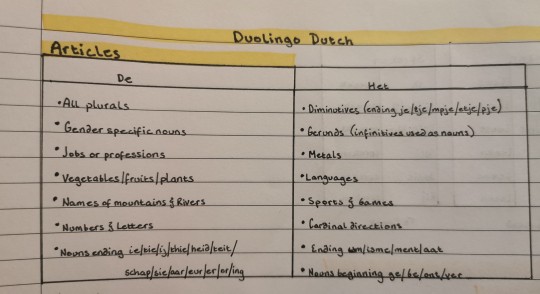 Duolingo Dutch
Articles
De
• All plurals
• Gender specific nouns
• Jobs or professions
• Vegetables/fruits/plants
• Names of mountains & Rivers
• Numbers & Letters
• Nouns ending ie/tie/ij/thie/heid/teit/
schap/sie/aar/eur/er/or/ing
Het
• Diminutives (ending je/tje/mpje/etje/pje)
• Gerunds (infinitives used as nouns)
• Metals
• Languages
• Sports & Games
• Cardinal directions
• Ending um/isme/ment/aat
• Nouns beginning ge/be/ont/ver